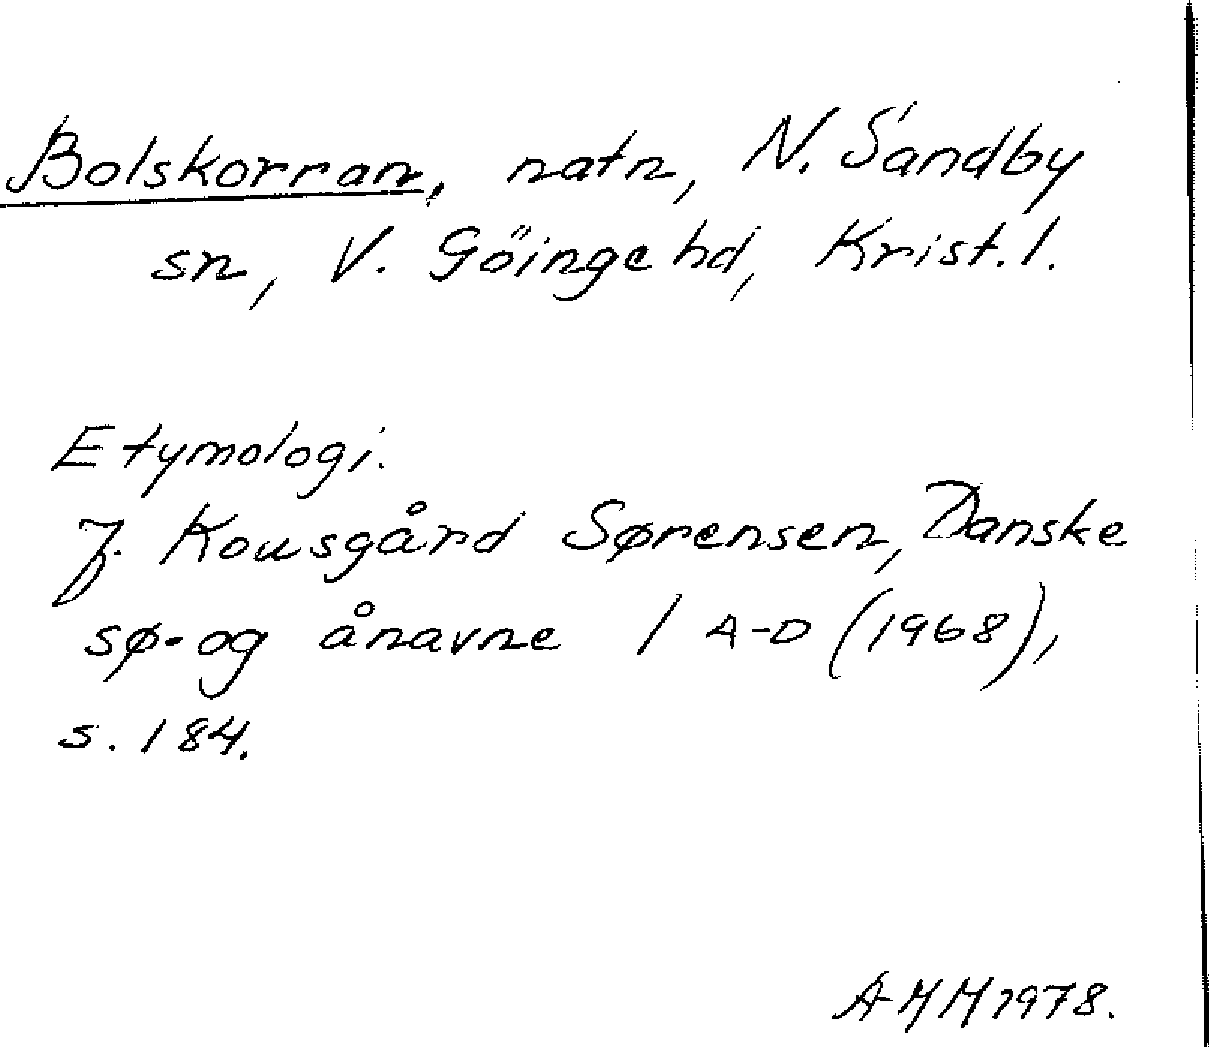 Bolskorran, natn, N. Sandby
sn, V. Göinge hd, Krist. l.
Etymologi.
J. Kousgård Sørensen, Danske
sø- og ånavne 1 A-D (1968),
s. 184.
1978.